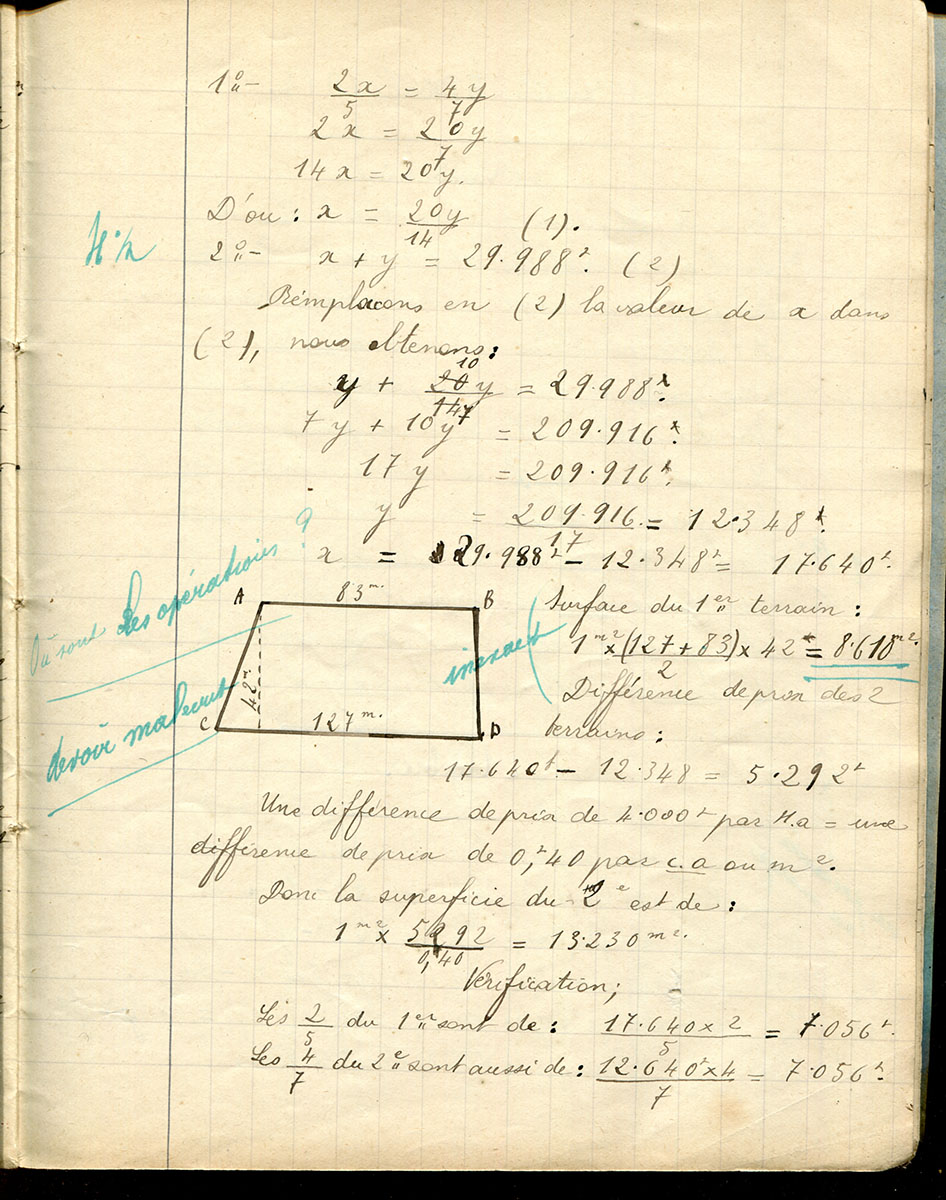 1º- 2x/5 = 4y/7
2x = 20y/7
14x = 20y.
D'ou : x = 20y/14 (1).
2º- x + y = 29.988ᶠ. (2)
Rémplacons en (2) la valeur de x dans
(2), nous obtenons :
y + 20y/14 = 29.988ᶠ.
10
7
7y + 10y = 209.916ᶠ.
17y = 209.916ᶠ.
y = 209.916/17 = 12.348ᶠ.
x = 29.988ᶠ - 12.348ᶠ = 17.640ᶠ.
Où sont les opérations ?
devoir mal écrit
A 83 m. B
42 m.
C 127 m. D
inexact
Surface du 1er terrain :
1 m² × (127 + 83) × 42 / 2 = 8.610 m².
Différence de prix des 2
terrains :
17.640ᶠ - 12.348 = 5.292ᶠ
Une différence de prix de 4.000ᶠ par H.a = une
différence de prix de 0,ᶠ40 par c.a ou m².
Donc la superficie du 2e est de :
1 m² × 5292/0,40 = 13.230 m².
Vérification ;
Les 2/5 du 1er sont de : 17.640 × 2 / 5 = 7.056ᶠ.
Les 4/7 du 2e sont aussi de : 12.640ᶠ × 4 / 7 = 7.056ᶠ.